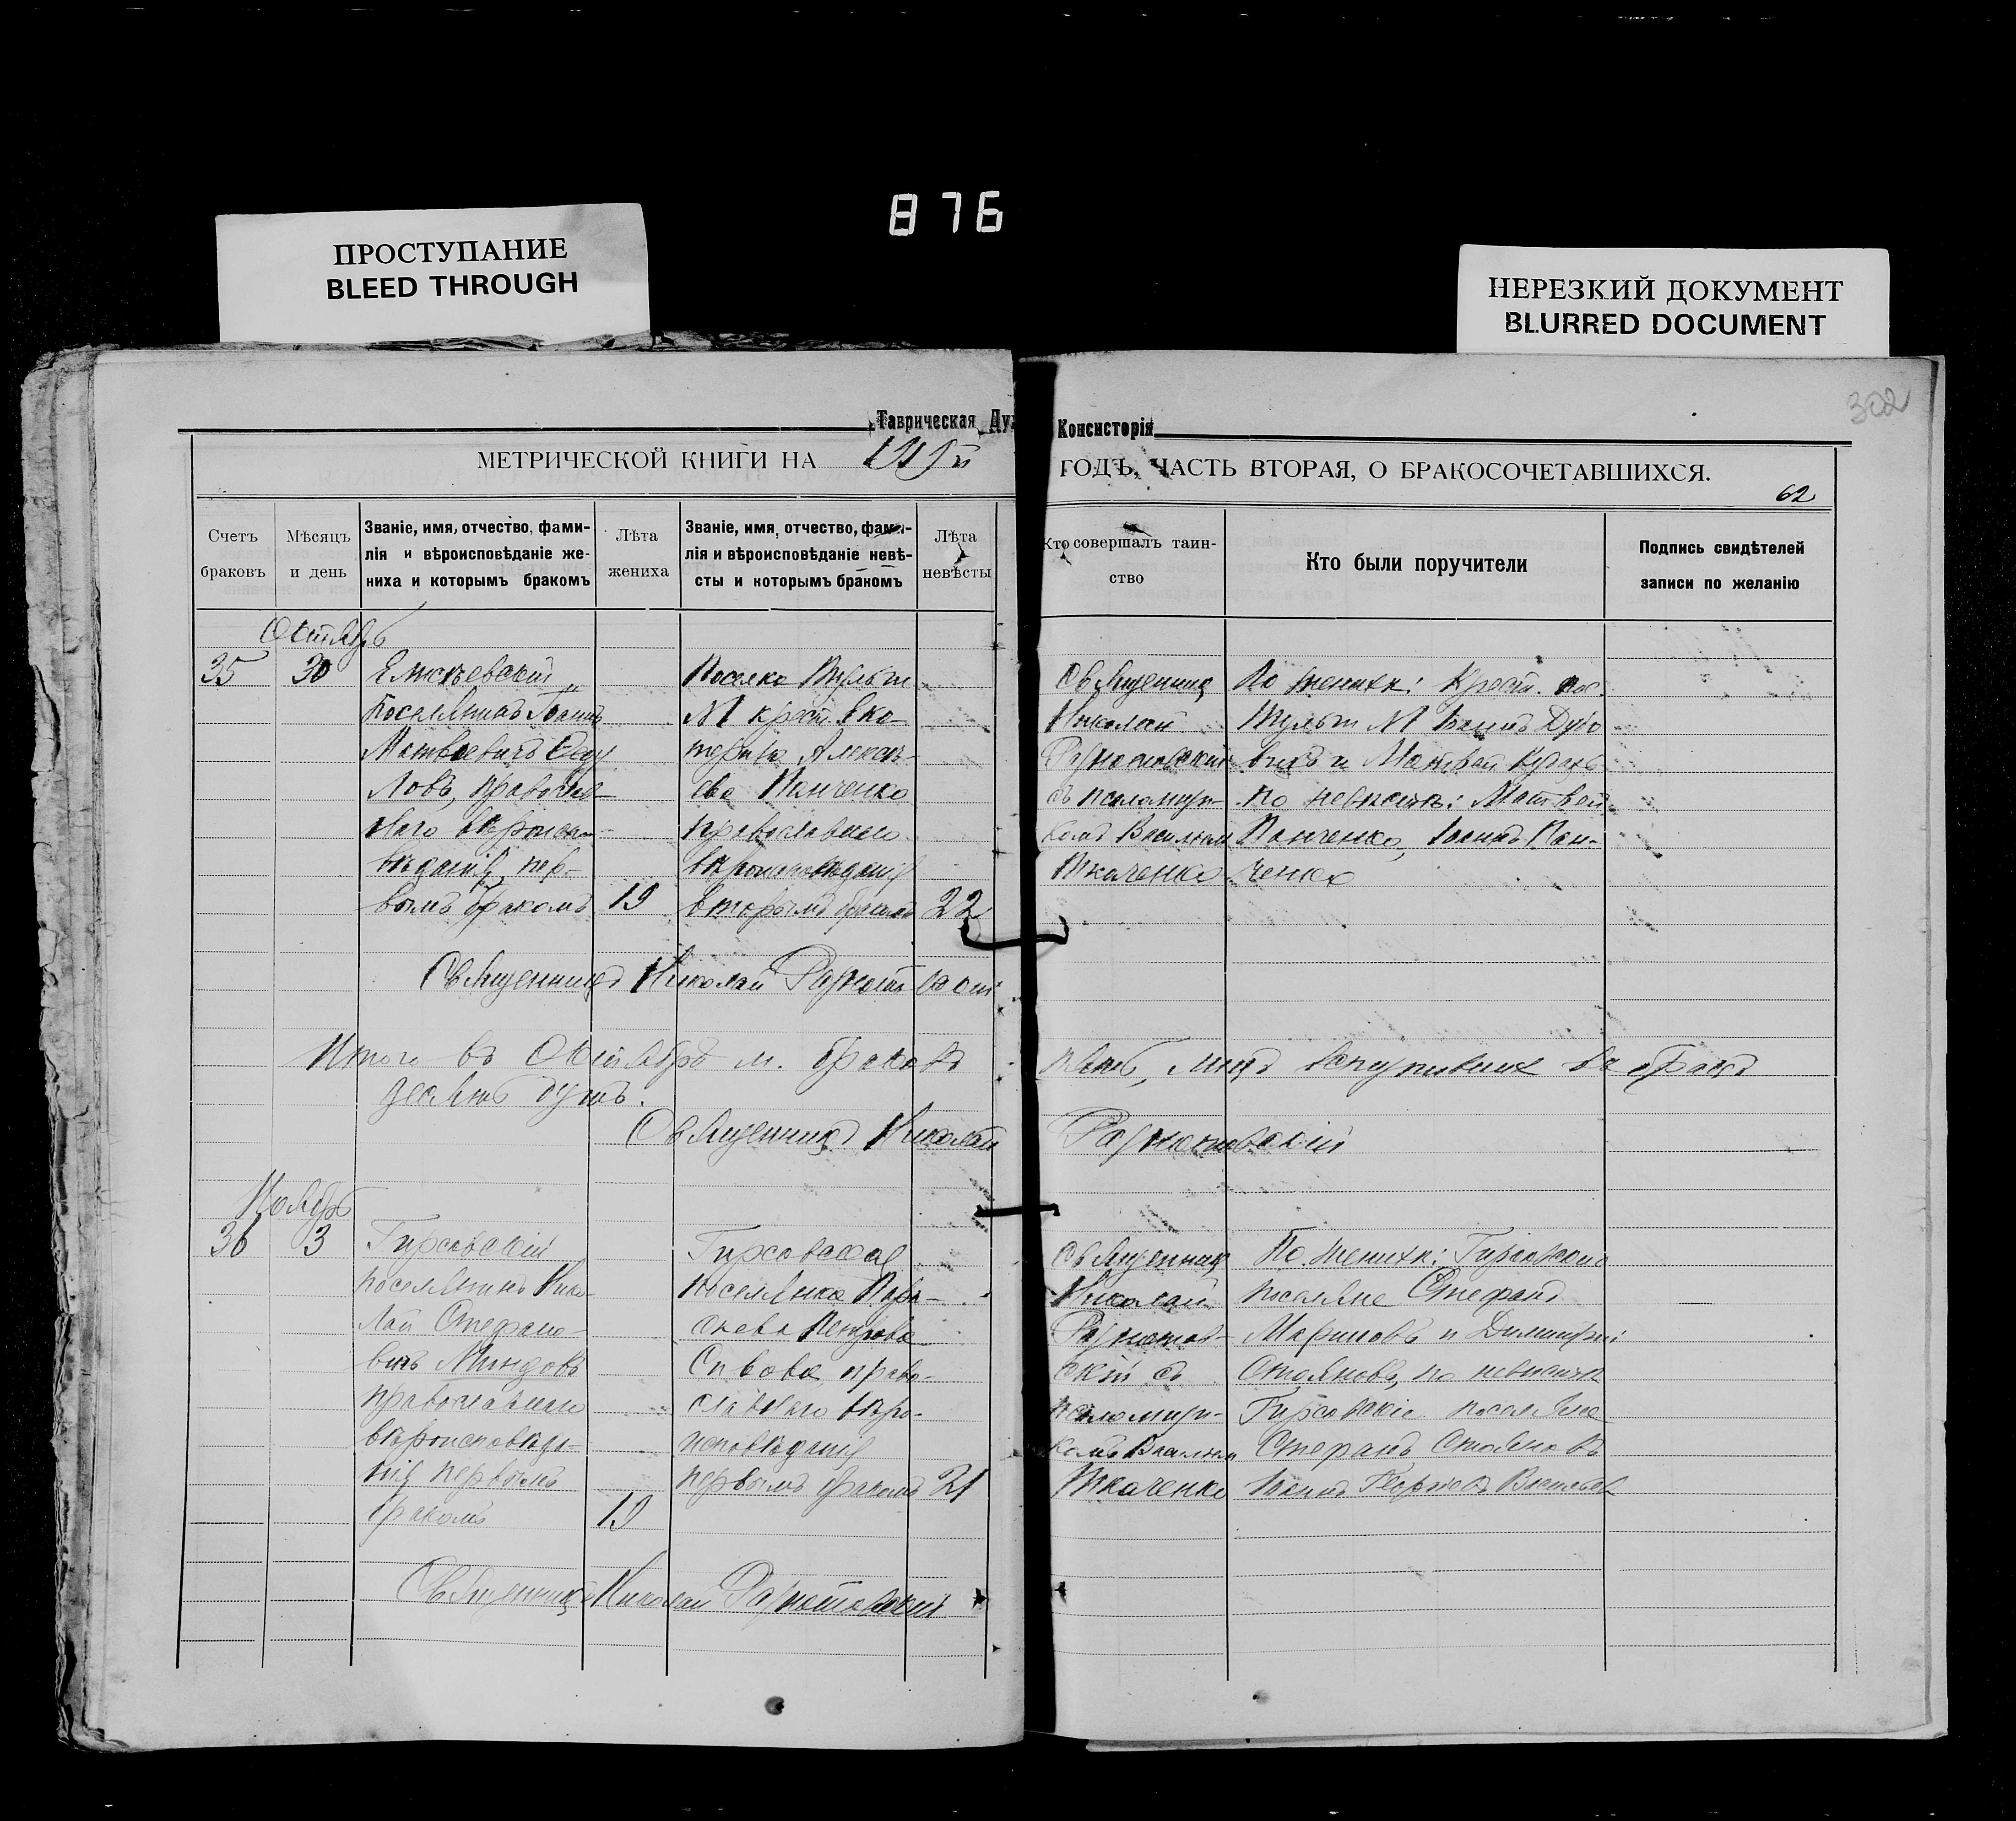 876
ПРОСТУПАНИЕ
BLEED THROUGH
НЕРЕЗКИЙ ДОКУМЕНТ
BLURRED DOCUMENT
302
Таврическая Ду
Консисторія
МЕТРИЧЕСКОЙ КНИГИ НА
ГОДЪ, ЧАСТЬ ВТОРАЯ, О БРАКОСОЧЕТАВШИХСЯ.
62
Счетъ браковъ
Мѣсяцъ и день
Званіе, имя, отчество, фами-
лія и вѣроисповѣданіе же-
ниха и которымъ бракомъ
Лѣта жениха
Званіе, имя, отчество, фами-
лія и вѣроисповѣданіе невѣ-
сты и которымъ бракомъ
Лѣта невѣсты
Кто совершалъ таин-
ство
Кто были поручители
Подпись свидѣтелей
записи по желанію
Октябрь
35
30
поселянинъ Іоаннъ
Матвѣевичъ
православ-
наго вѣроиспо-
вѣданія, пер-
вымъ бракомъ
19
М крест. Ека-
терина Алексѣ-
ева Панченко
православнаго
вѣроисповѣданія
вторымъ бракомъ
22
Священникъ
Николай
съ псаломщи-
комъ Василіем
Ткаченко
По женихѣ: Крест. пос.
М Іоаннъ Дубо
викъ и Матвѣй
по невѣстѣ: Матвѣй
Панченко, Іоаннъ Пан-
ченко
Священникъ Николай
Итого въ Октябрѣ м. браковъ
пять, лицъ вступившихъ въ бракъ
десять душъ.
Священникъ Николай
Ноябрь
36
3
Гирсовскій
поселянинъ Нико-
лай Стефано-
вичъ Миндовъ
православнаго
вѣроисповѣда-
нія первымъ
бракомъ
19
Гирсовская
поселянка Пара-
скева Петрова
право-
славнаго вѣро-
исповѣданія
первымъ бракомъ
21
Священникъ
Николай
скій съ
псаломщи-
комъ Василіем
Ткаченко
По женихѣ: Гирсовскіе
поселяне Стефанъ
Мариновъ и Димитрій
Стояновъ, по невѣстѣ
Гирсовскіе поселяне
Стефанъ Стояновъ
Іоаннъ Георгіевъ
Священникъ Николай